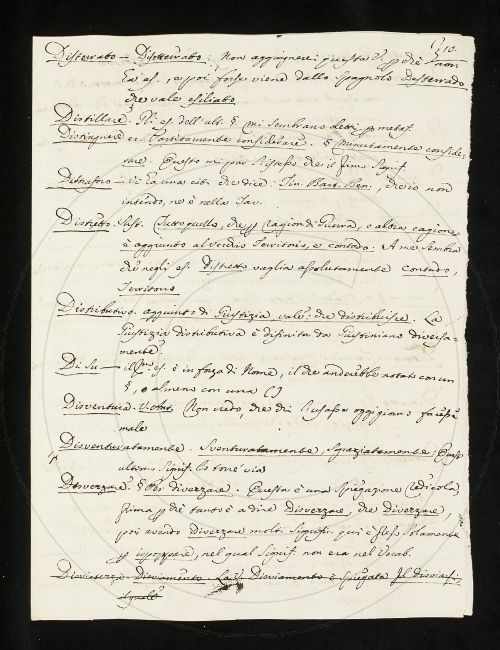 10.
Disterrato — Disotterrato: Non aggiugnerei questa §. che non
ha es., e poi forse viene dallo Spagnolo Desterrado
che vale esiliato
Distillare. Gl' es. dell' ult. §. mi sembrano detti metaf.
Distinguere Partitamente considerare. § Minutamente conside-
rare. Questo mi par Ripeto che il primo Signif.
Vi ha una cit. che dice: Tin. Bart. Ben., che io non
intendo, ne è nella Tav.
Distretto. Sust. Tutto quello, che per ragion di Guerra, o altra cagione
è aggiunto al Vecchio Territorio, e contado. A me sembra
che negli es. distretto vaglia assolutamente contado,
Territorio
Distributivo. aggiunto di Giustizia vale: che distribuisce. La
Giustizia distributiva è difinita da Giustiniano diversa-
mente.
Di Su — il es. è in forza di Nome, il che anderebbe notato con un
§, o almeno con una ( )
Disventura. Non credo, che dir oggigiorno
male
Disventuratamente. Sventuratamente, Sgraziatamente. Quest'
ultimo Signif. lo torre' via
Disverzare. § Per diverzare. Questa è una spiegazione ridicola
prima perchè tanto è a dire disverzare, che diverzare,
poi avendo diverzare molti Signif. qui è solamente
per, nel qual Signif. non era nel Vocab.
Disviamento La Disviamento è spiegata Il disviar